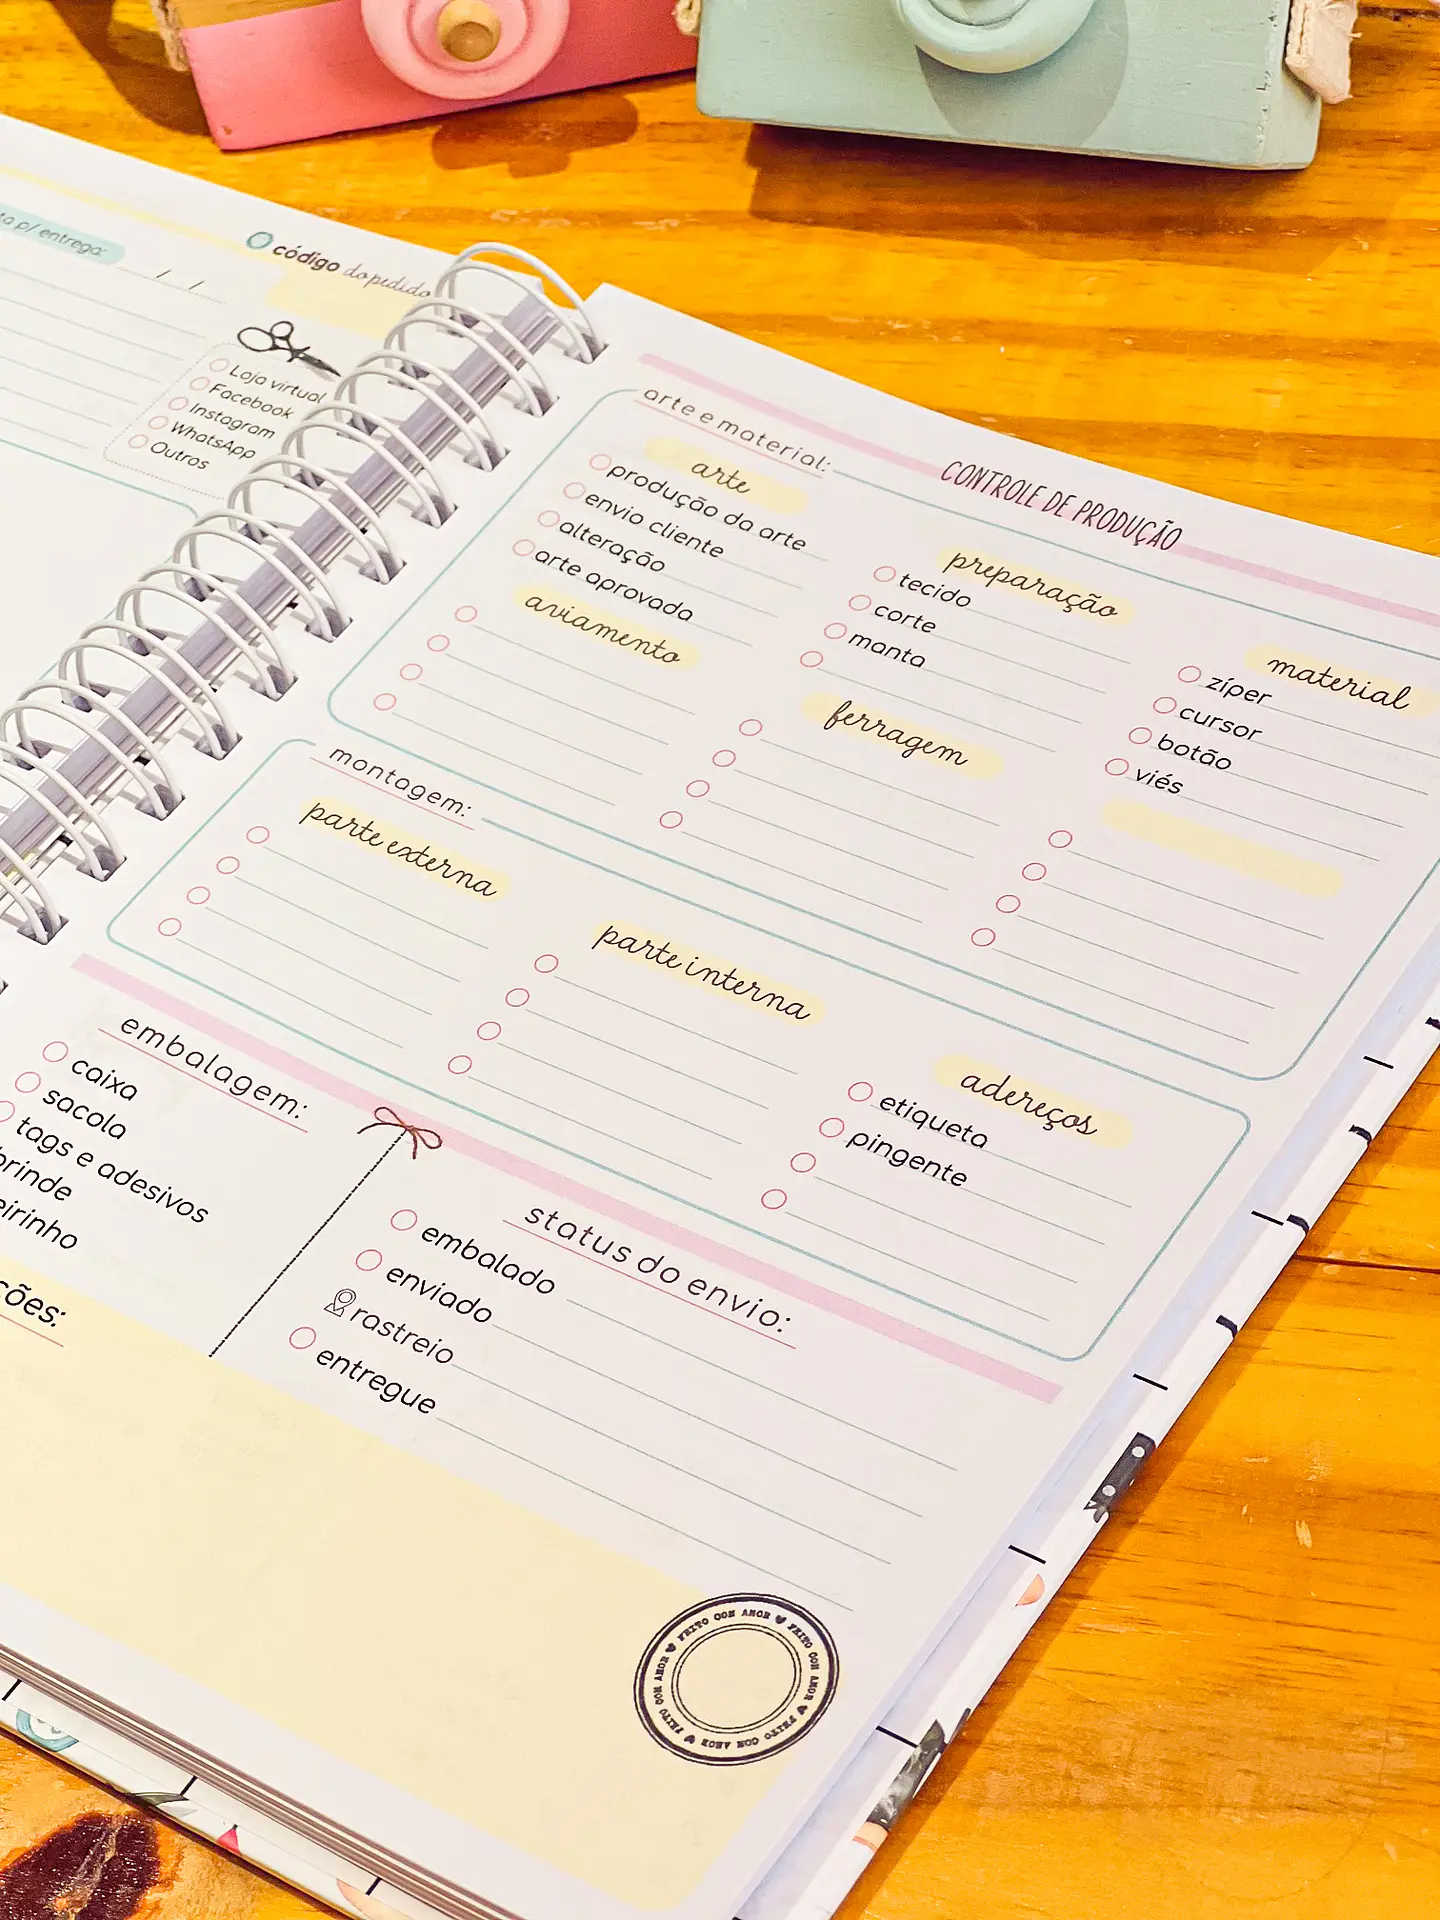 p/ entrega:
/ /
código do pedido
Loja virtual
Facebook
Instagram
WhatsApp
Outros
CONTROLE DE PRODUÇÃO
arte e material:
arte
produção da arte
envio cliente
alteração
arte aprovada
aviamento
preparação
tecido
corte
manta
ferragem
material
zíper
cursor
botão
viés
montagem:
parte externa
parte interna
adereços
etiqueta
pingente
embalagem:
caixa
sacola
tags e adesivos
brinde
status do envio:
embalado
enviado
rastreio
entregue
FEITO COM AMOR FEITO COM AMOR FEITO COM AMOR FEITO COM AMOR